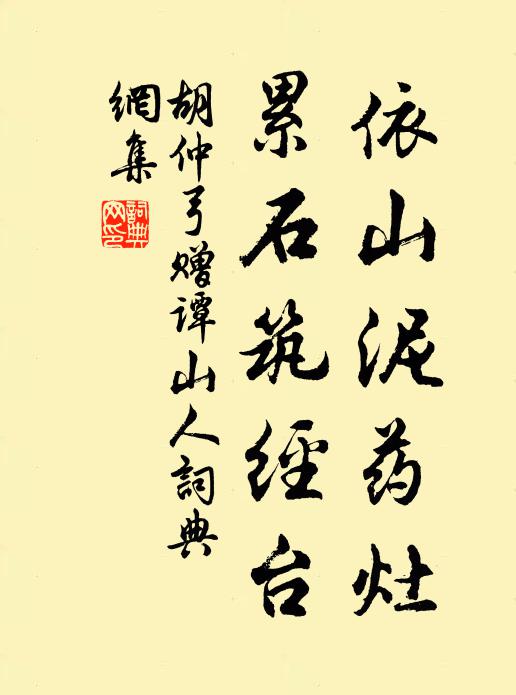 依山泥药灶
累石筑经台
胡仲弓赠谭山人詞典
網集
詞典网印